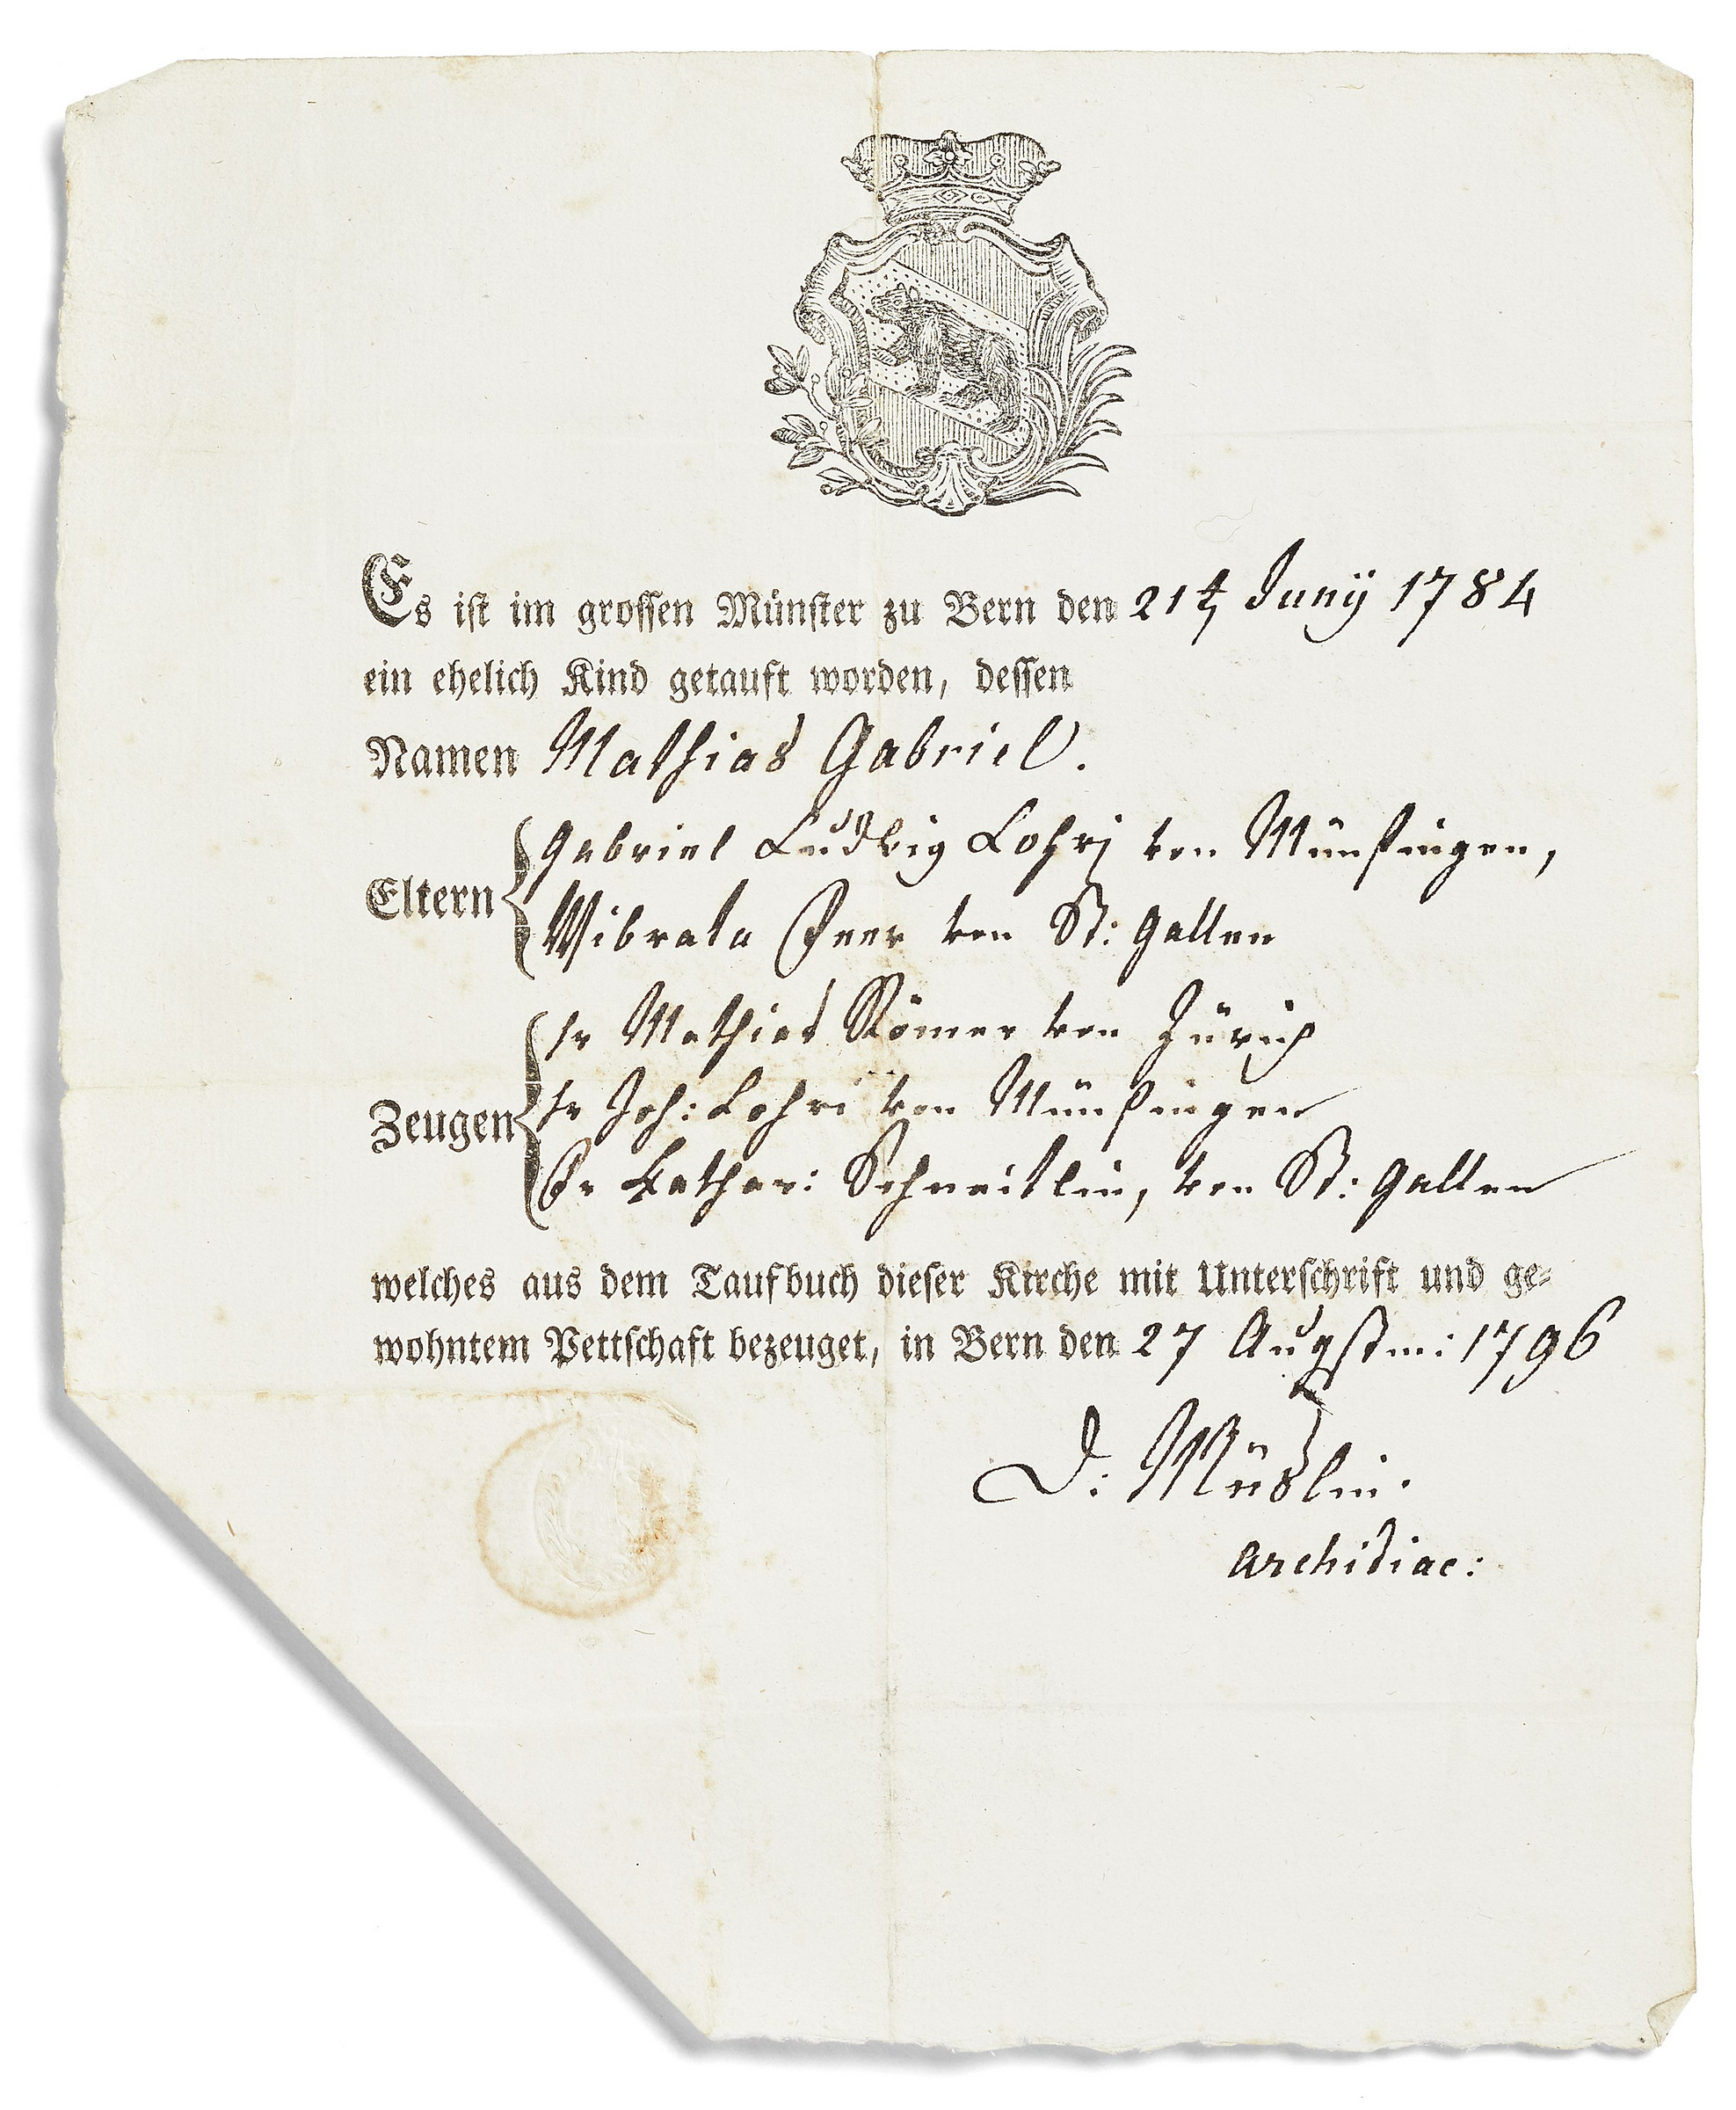 Es ist im grossen Münster zu Bern den 21t Junÿ 1784
ein ehelich Kind getauft worden, dessen
Namen Mathias Gabriel.
Eltern Gabriel Ludwig Lohrj von Münsingen,
Wibrata von St: Gallen
Zeugen hr Mathias Römer von Zürich
hr Joh: Lohri von Münsingen
Fr Cathar: Schneitlin, von St: Gallen
welches aus dem Taufbuch dieser Kirche mit Unterschrift und ge-
wohntem Pettschaft bezeuget, in Bern den 27 Augstm: 1796
D: Müslin.
Archidiac: